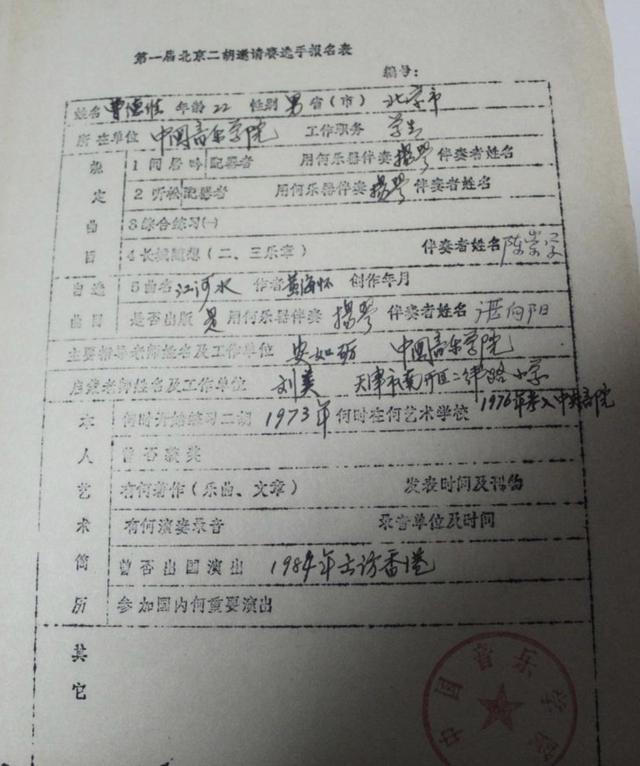 第一届北京二胡邀请赛选手报名表
编号:
姓名 曹德维 年龄 22 性别 男 省(市) 北京市
所在单位 中国音乐学院 工作职务 学生
规定曲目
1 闲居吟 配器者 用何乐器伴奏 扬琴 伴奏者姓名
2 听松 配器者 用何乐器伴奏 扬琴 伴奏者姓名
3 综合练习(一)
4 长城随想(二、三乐章) 伴奏者姓名
自选曲目
5 曲名 江河水 作者 黄海怀 创作年月
是否出版 是 用何乐器伴奏 扬琴 伴奏者姓名 湛向阳
主要指导老师姓名及工作单位 安如砺 中国音乐学院
启蒙老师姓名及工作单位 刘美 天津市南开区二纬路小学
本人艺术简历
何时开始练习二胡 1973年 何时在何艺术学校 1976年考入中央音院
曾否获奖
有何著作(乐曲、文章) 发表时间及刊物
有何演奏录音 录音单位及时间
曾否出国演出 1984年去访香港
参加国内何重要演出
其它
中国音乐学院